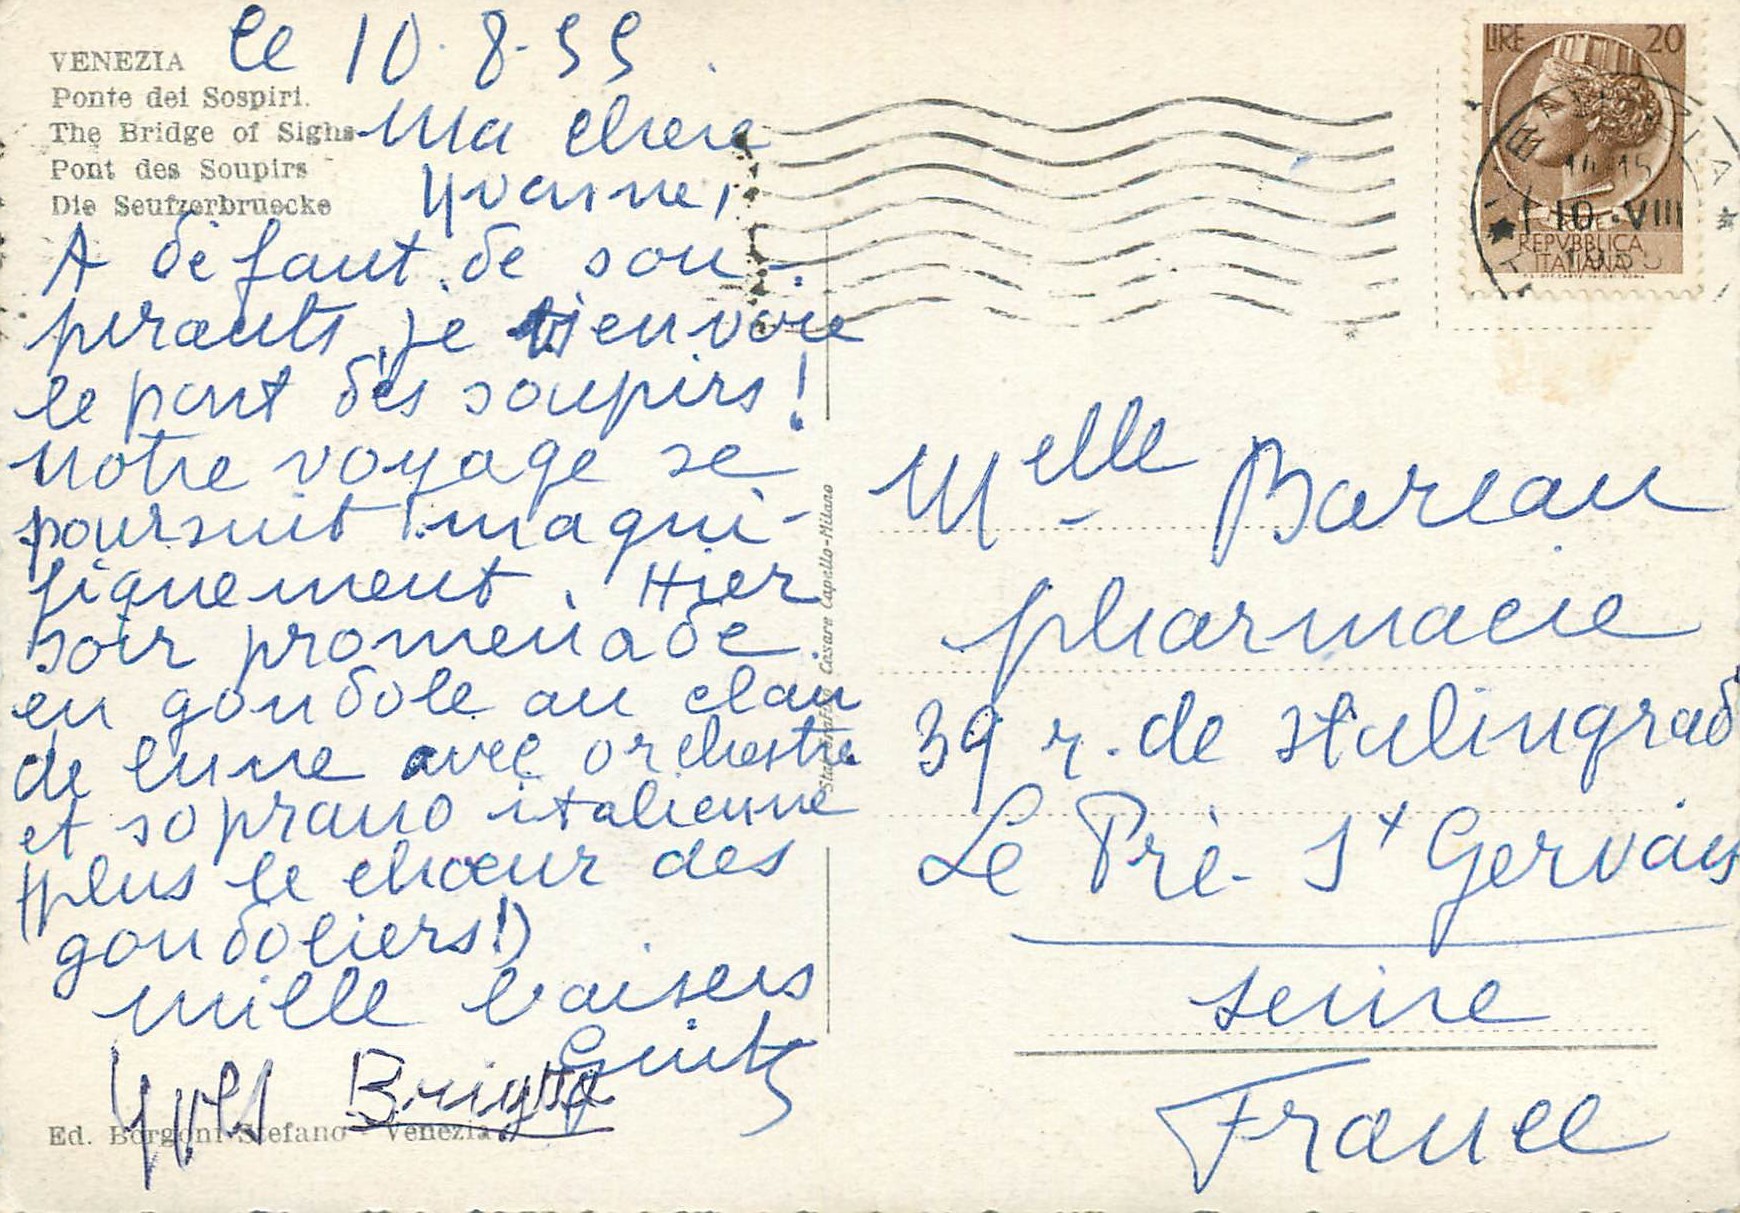 VENEZIA
Ponte dei Sospiri.
The Bridge of Sighs
Pont des Soupirs
Die Seufzerbruecke
Le 10.8.55.
Ma chère
Yvonne,
A défaut de sou-
pirants, je t'envoie
le pont des soupirs!
Notre voyage se
poursuit magni-
fiquement. Hier
soir promenade
en gondole au clair
de lune avec orchestre
et soprano italienne
(plus le chœur des
gondoliers!)
mille baisers
Yves Brigitte
Ed. Borgoni Stefano - Venezia
Cesare Capello-Milano
LIRE 20
10.VIII
REPVBBLICA
ITALIANA
Melle Bareau
pharmacie
39 r. de Stalingrad
Le Pré-St Gervais
Seine
France